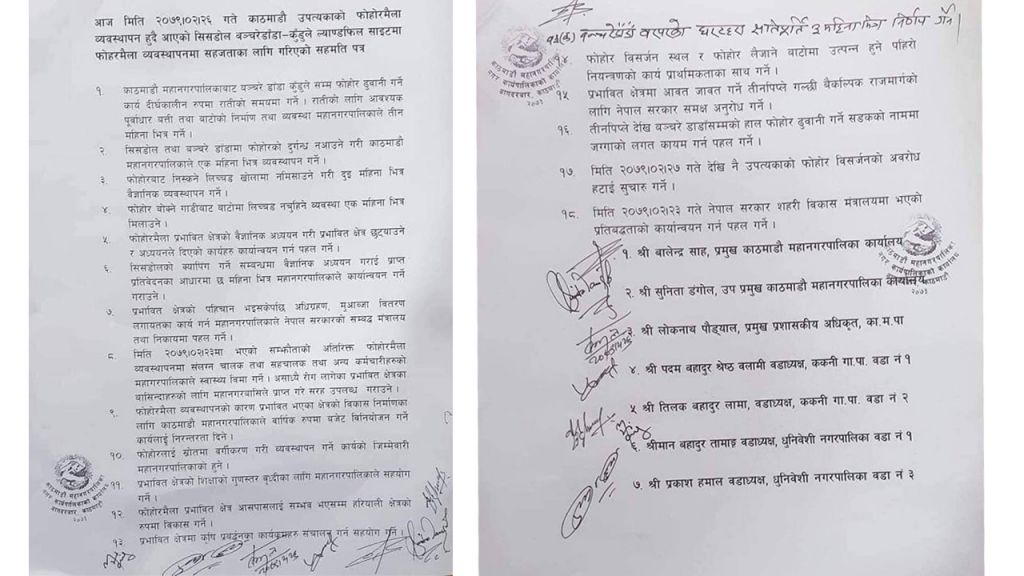 आज मिति २०७९।०२।२६ गते काठमाडौ उपत्यकाको फोहोरमैला
व्यवस्थापन हुदै आएको सिसडोल बञ्चरेडाँडा-कुँडुले ल्याण्डफिल साइटमा
फोहरमैला व्यवस्थापनमा सहजताका लागि गरिएको सहमति पत्र
१. काठमाडौ महानगरपालिकाबाट बञ्चरे डाँडा कुँडुले सम्म फोहोर ढुवानी गर्ने
कार्य दीर्घकालीन रुपमा रातीको समयमा गर्ने । रातीको लागि आवश्यक
पूर्वाधार बत्ती तथा बाटोको निर्माण तथा व्यवस्था महानगरपालिकाले तीन
महिना भित्र गर्ने ।
२. सिसडोल तथा बञ्चरे डांडामा फोहरको दुर्गन्ध नआउने गरी काठमाडौ
महानगरपालिकाले एक महिना भित्र व्यवस्थापन गर्ने ।
३. फोहोरबाट निस्कने लिच्चड खोलामा नमिसाउने गरी दुइ महिना भित्र
बैज्ञानिक व्यवस्थापन गर्ने ।
४. फोहोर बोक्ने गाडीबाट बाटोमा लिच्चड नचुहिने व्यवस्था एक महिना भित्र
मिलाउने ।
५. फोहोरमैला प्रभावित क्षेत्रको बैज्ञानिक अध्ययन गरी प्रभावित क्षेत्र छुट्याउने
र अध्ययनले दिएको कार्यहरु कार्यान्वयन गर्न पहल गर्ने ।
६. सिसडोलको क्यापिंग गर्ने सम्बन्धमा बैज्ञानिक अध्ययन गराई प्राप्त
प्रतिवेदनका आधारमा छ महिना भित्र महानगरपालिकाले कार्यान्वयन गर्ने
गराउने ।
७. प्रभावित क्षेत्रको पहिचान भइसकेपछि अधिग्रहण, मुआब्जा वितरण
लगायतका कार्य गर्न महानगरपालिकाले नेपाल सरकारको सम्बद्ध मंत्रालय
तथा निकायमा पहल गर्ने ।
८. मिति २०७९।०२।२३मा भएको सम्झौताको अतिरिक्त फोहोरमैला
व्यवस्थापनमा संलग्न चालक तथा सहचालक तथा अन्य कर्मचारीहरुको
महागरपालिकाले स्वास्थ्य विमा गर्ने । असाध्यै रोग लागेका प्रभावित क्षेत्रका
बासिन्दाहरुको लागि महानगरबासिले प्राप्त गरे सरह उपलब्ध गराउने ।
९. फोहोरमैला व्यवस्थापनको कारण प्रभावित भएका क्षेत्रको विकास निर्माणका
लागि काठमाडौ महानगरपालिकाले बार्षिक रुपमा बजेट बिनियोजन गर्ने
कार्यलाई निरन्तरता दिने ।
१०. फोहोरलाई स्रोतमा वर्गीकरण गरी व्यवस्थापन गर्ने कार्यको जिम्मेवारी
महानगरपालिकाको हुने ।
११. प्रभावित क्षेत्रको शिक्षाको गुणस्तर बृध्दीका लागि महानगरपालिकाले सहयोग
गर्ने ।
१२. फोहोरमैला प्रभावित क्षेत्र आसपासलाई सम्भव भएसम्म हरियाली क्षेत्रको
रुपमा विकास गर्ने ।
१३. प्रभावित क्षेत्रमा कृषि प्रवर्द्धनका कार्यकमहरु संचालन गर्न सहयोग गर्ने ।
काठमाडौं महानगरपालिका
नगर कार्यपालिकाको कार्यालय
बागदरबार, काठमाडौं
२०७३
महिना भित्र निर्णय गर्ने।
१४. फोहोर बिसर्जन स्थल र फोहोर लैजाने बाटोमा उत्पन्न हुने पहिरो
नियन्त्रणको कार्य प्राथमिकताका साथ गर्ने ।
१५ प्रभावित क्षेत्रमा आवत जावत गर्ने तीनपिप्ले गल्छी बैकल्पिक राजमार्गको
लागि नेपाल सरकार समक्ष अनुरोध गर्ने ।
१६. तीनपिप्ले देखि बञ्चरे डाडाँसम्मको हाल फोहोर ढुवानी गर्ने सडकको नाममा
जग्गाको लगत कायम गर्न पहल गर्ने ।
१७. मिति २०७९।०२।२७ गते देखि नै उपत्यकाको फोहोर बिसर्जनको अवरोध
हटाई सुचारु गर्ने ।
१८. मिति २०७९।०२।२३ गते नेपाल सरकार शहरी विकास मंत्रालयमा भएको
प्रतिबद्धताको कार्यान्वयन गर्न पहल गर्ने ।
१. श्री बालेन्द्र साह, प्रमुख काठमाडौ महानगरपालिका कार्यालय
२. श्री सुनिता डंगोल, उप प्रमुख काठमाडौ महानगरपालिका कार्यालय
३. श्री लोकनाथ पौड्याल, प्रमुख प्रशासकीय अधिकृत, का.म.पा
४. श्री पदम बहादुर श्रेष्ठ वलामी वडाध्यक्ष, ककनी गा.पा. वडा नं १
५ श्री तिलक बहादुर लामा, वडाध्यक्ष, ककनी गा.पा. वडा नं २
६. श्रीमान बहादुर तामाङ्ग वडाध्यक्ष, धुनिवेशी नगरपालिका वडा नं १
७. श्री प्रकाश हमाल वडाध्यक्ष, धुनिवेशी नगरपालिका वडा नं ३